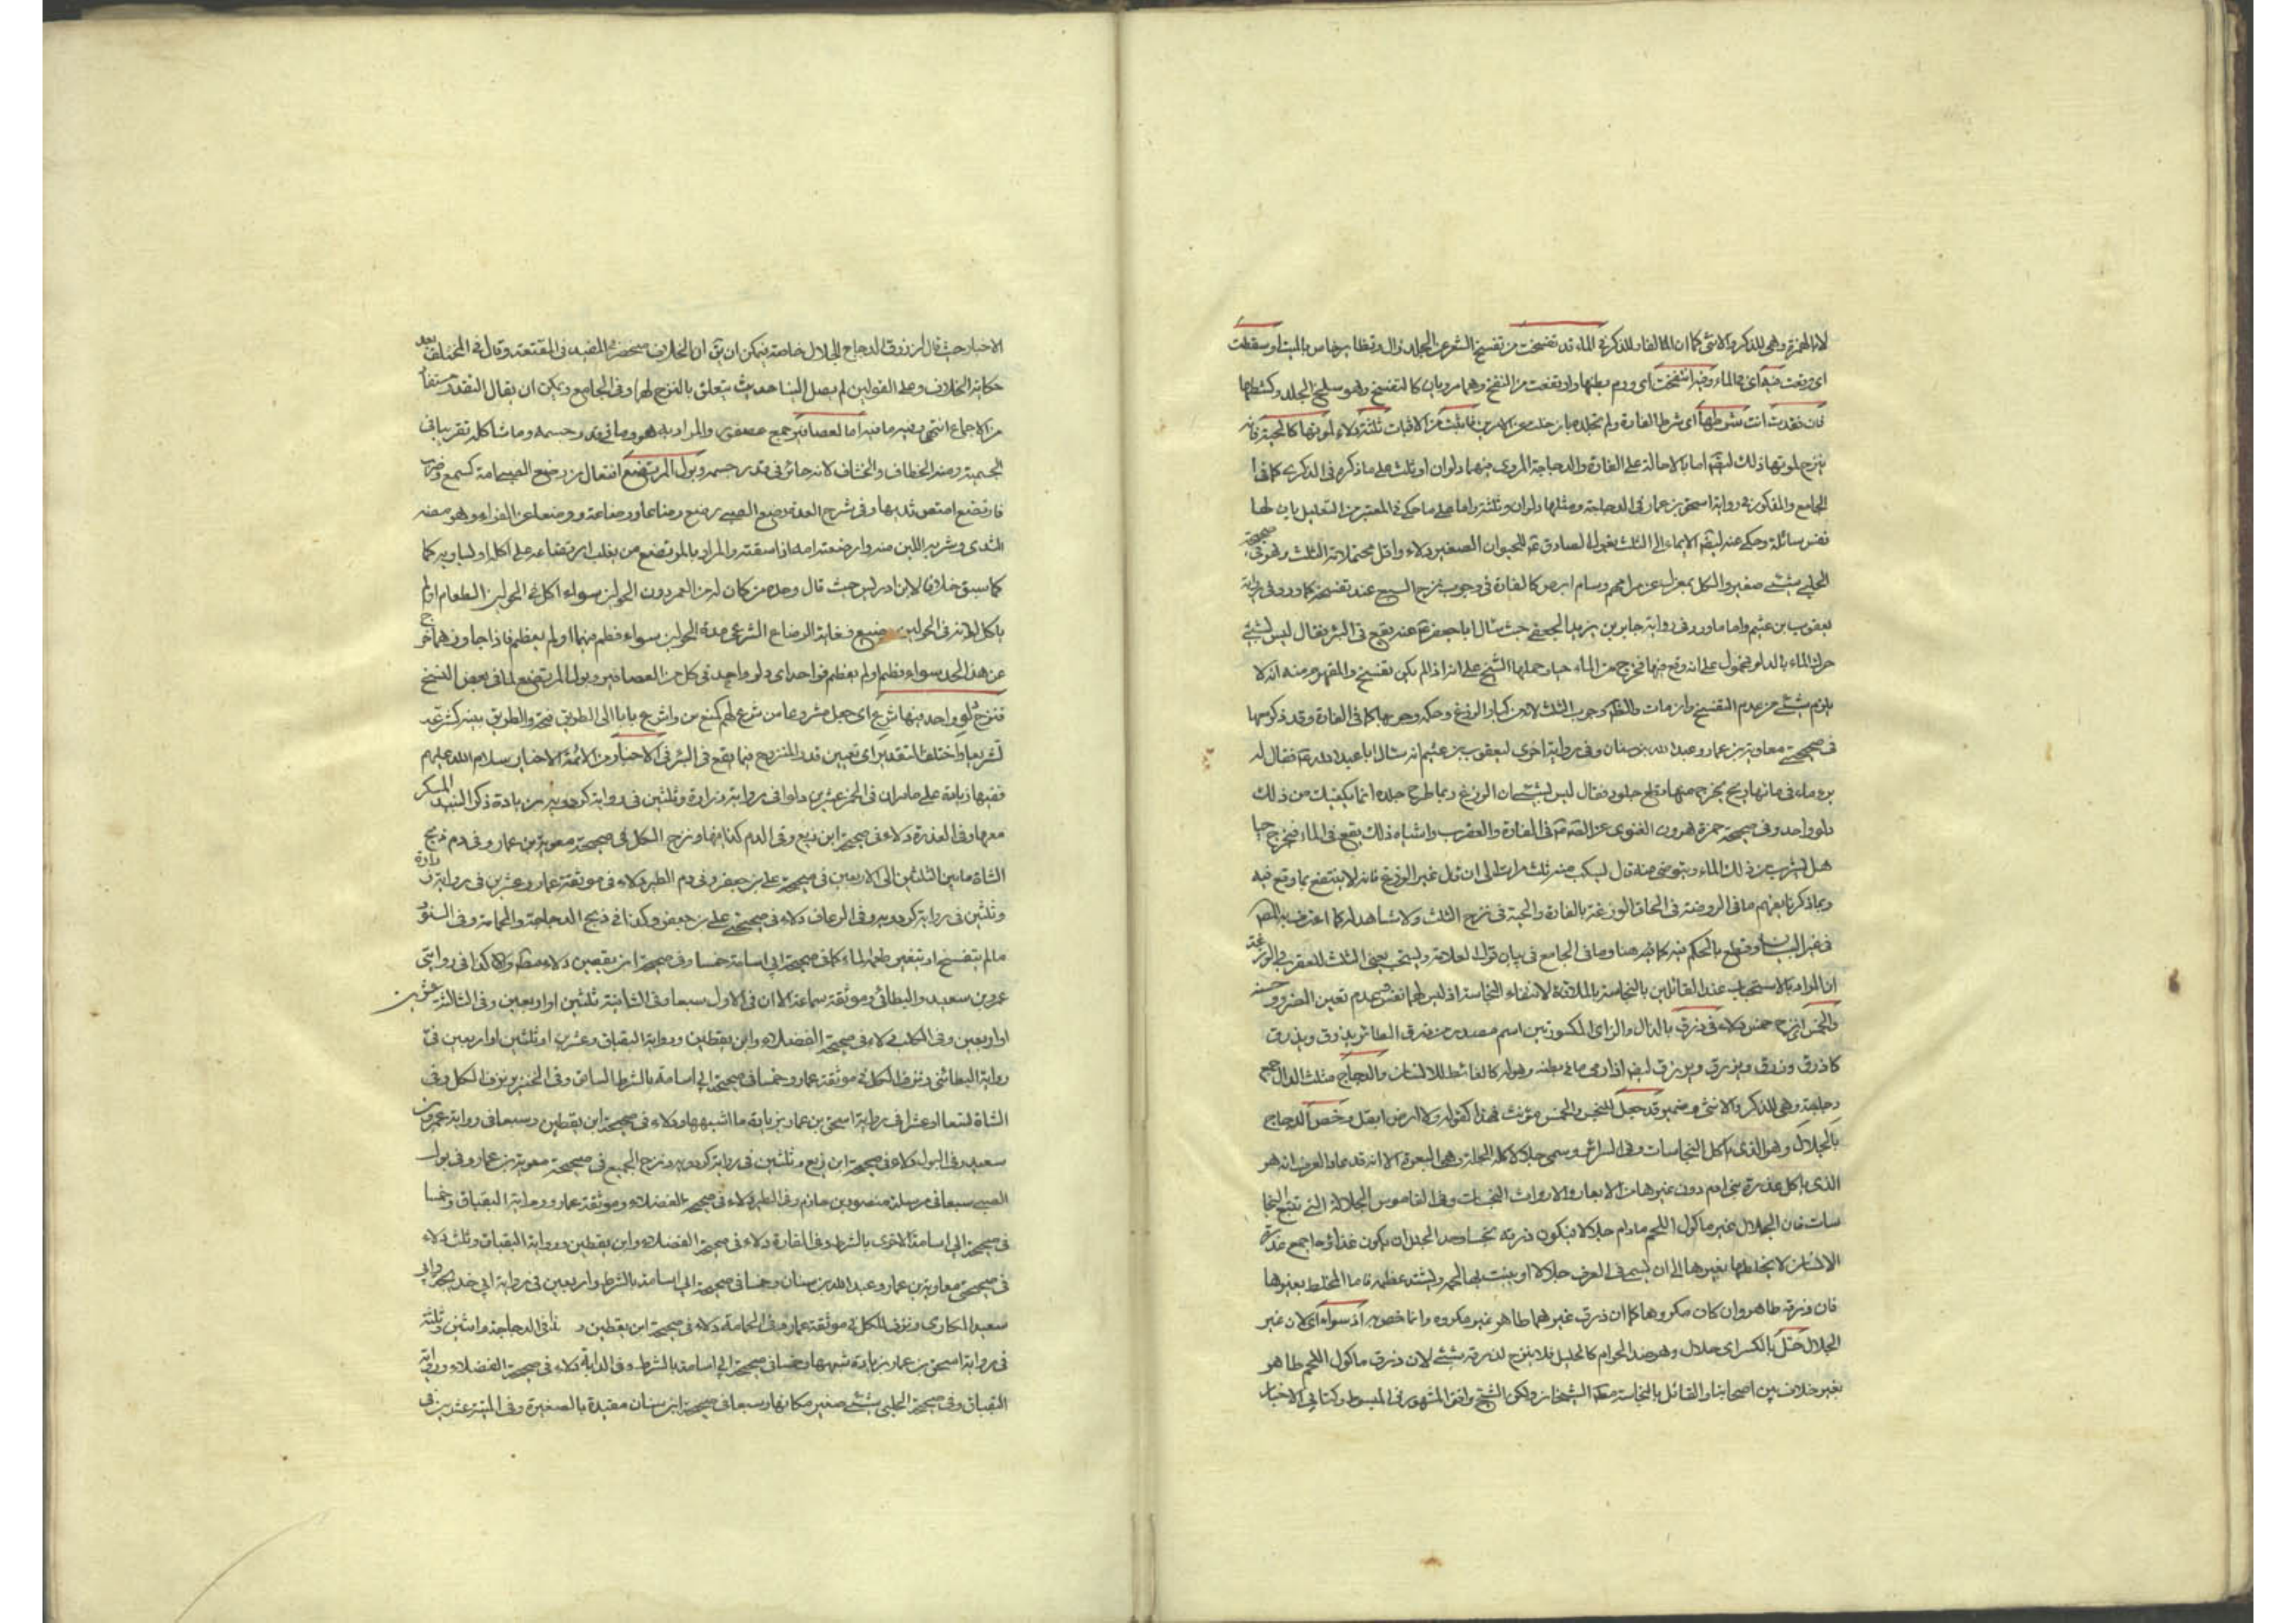 لانها لهمزة وهي للذكر والانثى كما ان الفار للذكر في الماء قد تفسخت من تفسخ الشعر عن الجلد زال وتطاير خاص بالميت او سقطت
اى وقعت فيه اى في الماء وفيه انتفخت اى ورم بطنها وارتفعت من النفخ وهما مرويان كالتفسخ وهو سلخ الجلد وكشطها
فان فقدت انت شرطها اى شرط الفارة ولم تجلد مبار خلت عن الامرين فاثبت من الاثبات ثلثة دلاء لموتها كالحية فانه
ينزح لموتها ذلك اما بالاحالة على الفارة والدجاجة المروى فيهما دلوان او ثلث على ما ذكره في الذكرى كما في
الجامع والمذكور في رواية اسحق بن عمار في الدجاجة ومثلها دلوان وثلثة واما على ما حكى في المعتبر من التعليل بان لها
نفس سائلة وحكى عنه الايماء الى الثلث بقول الصادق للحيوان الصغير دلاء واقل محتملاته الثلث وهو في صحيحة
الحلبي بشئ صغير والكل بمعزل عن مرامهم وسام ابرص كالفارة في وجوب نزح السبع عند تفسخه كما ورد في رواية
يعقوب بن عثيم واما ما ورد في رواية جابر بن يزيد الجعفي حيث سال ابا جعفر عنه يقع في البئر فقال ليس بشئ
حرك الماء بالدلو فمحمول على انه وقع فيها فخرج من الماء حيا وحملها الشيخ على انه اذا لم يكن تفسخ والمفهوم منه انه لا
يلزم شئ مع عدم التفسخ وان مات والنظم وجوب الثلث لانه من كبار الوزغ وحكمه وجوبها كما في الفارة وقد ذكر معها
في صحيحتى معاوية بن عمار وعبد الله بن سنان وفي رواية اخرى ليعقوب بن عثيم انه سال ابا عبد الله فقال له
بئر ماء في مائها ريح يخرج منها قطع جلود فقال ليس بشئ ان الوزغ ربما طرح جلده انما يكفيك من ذلك
دلو واحد وفي صحيحة حمزة هرون الغنوى عن في الفارة والعقرب واشباه ذلك يقع في الماء فيخرج حيا
هل يشرب من ذلك الماء ويتوضى منه قال يسكب منه ثلث مرات الى ان قال غير الوزغ فانه لا ينتفع بما وقع فيه
وبما ذكرنا يفهم ما في الروضة في الحاق الوزغة بالفارة والحية في نزح الثلث ولا شاهد له كما اعترف به المص
في غير البيان وقطع بالحكم فيه كما فيه هنا وما في الجامع في بيان قول العلامة ويستحب يعنى الثلث للعقرب والوزغة
ان المراد بالاستحباب عند القائلين بالنجاسة بالملاقاة لانتفاء النجاسة اذ ليس لهما نفس عدم تعين الضرر وحسنه
والخمس انزح خمس دلاء في ذرق بالذال والزاى المكسورتين اسم مصدر من ذرق الطائر يذرق ويذرق
كاذرق وزرق ويزرق ويزرق اذا رمى ما في بطنه وهو له كالغائط للانسان والدجاج مثلث الدال جمع
دجاجة وهي للذكر والانثى وضمير قد جعل للخمس والخمس مؤنث فهذا كقوله ولا ارض ابقل وخص الدجاج
بالجلال وهو الذى اكل النجاسات وفي السرائر وسمى جلالا لاكله الجلة وهي البعرة الا انه قد صار العرف انه هو
الذى ياكل عذرة بنى ادم دون غيرها من الابعار والارواث النجسات وفي القاموس الجلالة التى تتبع النجا
سات فان الجلال غير ماكول اللحم ما دام جلالا فيكون ذرقه نجسا وحد الجلل ان يكون غذاؤها جمع عذرة
الانسان لا يخلطها بغيرها الى ان يسمى في العرف جلالا او ينبت بها لحمه ويشتد عظمه فاما المخلط بغيرها
فان ذرقه طاهر وان كان مكروها كما ان ذرق غيرهما طاهر غير مكروه وانما خص اذ سواه اى لان غير
الجلال حل بالكسر اى حلال وهو ضد الحرام كالحليل فلا ينزح لذرقه بشئ لان ذرق ماكول اللحم طاهر
بغير خلاف بين اصحابنا والقائل بالنجاسة مطلقا الشيخان ولكن الشيخ وافق المشهور في المبسوط وكتابي الاخبار
الاخبار حيث قال ان ذرق الدجاج الجلال خاصة فيمكن ان يق ان الخلاف منحصر في المفيد في المقنعة وقال في المختلف بعد
حكاية الخلاف وعلى القولين لم يصل الينا حديث يتعلق بالنزح لها وفي الجامع ويمكن ان يقال التقدير مستفاد
من الاجماع انتهى وفيه ما فيه اما لعصافير جمع عصفور والمراد به هو وما في قدر جسمه وما شاكله تقريبا في
الجسمية ومنه الخطاف والخشاف لانه طائر في قدر جسمه وبول المرتضع افتعال من رضع الصبي امه كسمع وضرب
فارتضع امتص ثديها وفي شرح العمدة رضع الصبي يرضع رضاعا ورضاعة ورضعا عن الفراء وهو مصه
الثدى وشربه اللبن منه وارضعته امه اذا سقته والمراد بالمرتضع من يغلب ارتضاعه على اكله او يساويه كما
كما سبق خلافا لابن ادريس حيث قال وحده من كان له من العمر دون الحولين سواء اكل في الحولين الطعام او لم
ياكل لانه في الحولين رضيع فغاية الرضاع الشرعى مدة الحولين سواء فطم فيهما او لم يفطم فاذا جاوزهما خرج
عن هذا الحد سواء فطم او لم يفطم فواحد اى دلو واحد في كل من العصافير وبول المرتضع لما في بعض النسخ
فنزح دلو واحد فيها شرع اى جعل مشروعا من شرع لهم كمنع سن واشرع بابا الى الطريق فتحه والطريق بينه كشرعه
تشريعا واختلف التقدير اى تعيين قدر المنزوح فيما يقع في البئر في الاخبار من الائمة الاخيار سلام الله عليهم
ففيها زيادة على ما مر ان في الخمر عشرين دلوا في رواية زرارة وثلثين في رواية كردويه بزيادة ذكر النبيذ المسكر
معها وفي العذرة دلاء في صحيحة ابن بزيع وفي الدم كذا فيها ونزح الكل في صحيحة معوية بن عمار وفي دم ذبح
الشاة ما بين الثلثين الى الاربعين في صحيحة على بن جعفر وفي دم الطير دلاء في موثقة عمار وعشرين في رواية زرارة
وثلثين في رواية كردويه وفي الرعاف دلاء في صحيحة على بن جعفر وكذا في ذبح الدجاجة والحمامة وفي السنور
مالم يتفسخ او يتغير طعم الماء كما في صحيحة ابى اسامة خمسا وفي صحيحة ابن يقطين دلاء مطلقا وكذا في روايتى
عمرو بن سعيد والبطائنى وموثقة سماعة الا ان في الاول سبعا وفي الثانية ثلثين او اربعين وفي الثالثة عشرين
او اربعين وفي الكلب دلاء في صحيحة الفضلاء وابن يقطين ورواية البقباق وعشرين او ثلثين او اربعين في
رواية البطائنى ونزف الكل في موثقة عمار وخمسا في صحيحة ابي اسامة بالشرط السابق وفي الخنزير نزف الكل وفي
الشاة تسعا او عشرا في رواية اسحق بن عمار بزيادة ما اشبهها ودلاء في صحيحة ابن يقطين وسبعا في رواية عمرو بن
سعيد وفي البول دلاء في صحيحة ابن بزيع وثلثين في رواية كردويه ونزح الجميع في صحيحة معوية بن عمار وفي بول
الصبى سبعا في مرسلة منصور بن حازم وفي الطير دلاء في صحيحة الفضلاء وموثقة عمار ورواية البقباق وخمسا
في صحيحة ابي اسامة الاخرى بالشرط وفي الفارة دلاء في صحيحة الفضلاء وابن يقطين ورواية البقباق وثلث دلاء
في صحيحتى معاوية بن عمار وعبد الله بن سنان وخمسا في صحيحة ابي اسامة بالشرط واربعين في رواية ابي خديجة وابي
سعيد المكارى ونزف الكل في موثقة عمار وفي الحمامة دلاء في صحيحة ابن يقطين و في الدجاجة واثنين وثلثة
في رواية اسحق بن عمار بزيادة شبهها وخمسا في صحيحة ابي اسامة بالشرط وفي الدابة دلاء في صحيحة الفضلاء ورواية
البقباق وفي صحيحة الحلبي بشئ صغير مكانها وسبعا في صحيحة ابن سنان مقيدة بالصغيرة وفي الميتة عشرين في